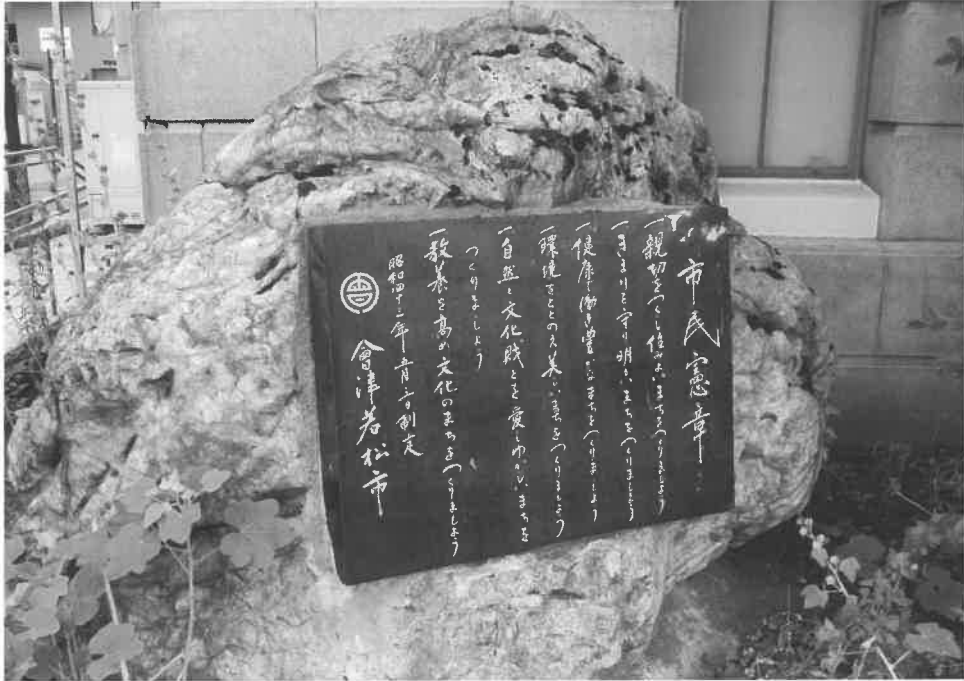 市民憲章
一親切をつくし住みよいまちをつくりましよう
一きまりを守り明かるいまちをつくりましよう
一健康で働き豊かなまちをつくりましよう
一環境をととのえ美しいまちをつくりましよう
一自然と文化財とを愛しゆかしいまちを
つくりましよう
一教養を高め文化のまちをつくりましよう
昭和四十三年五月一日制定
會津若松市